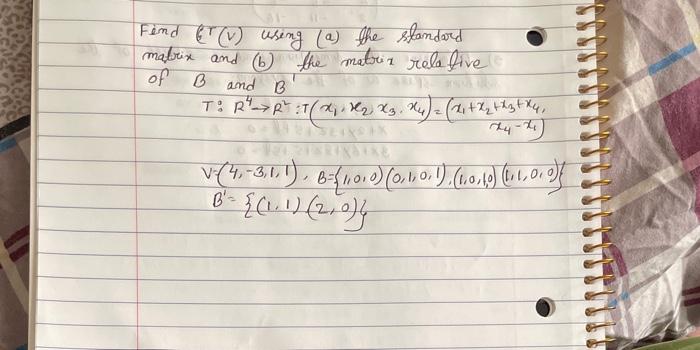 Find T(v) using (a) the standard
matrix and (b) the matrix relative
of B and B'
T: R⁴→R² : T(x₁, x₂, x₃, x₄) = (x₁+x₂+x₃+x₄,
x₄-x₁)
V=(4,-3,1,1), B={1,0,0) (0,1,0,1), (1,0,1,0) (1,1,0,0)}
B' = {(1,1) (2,0)}